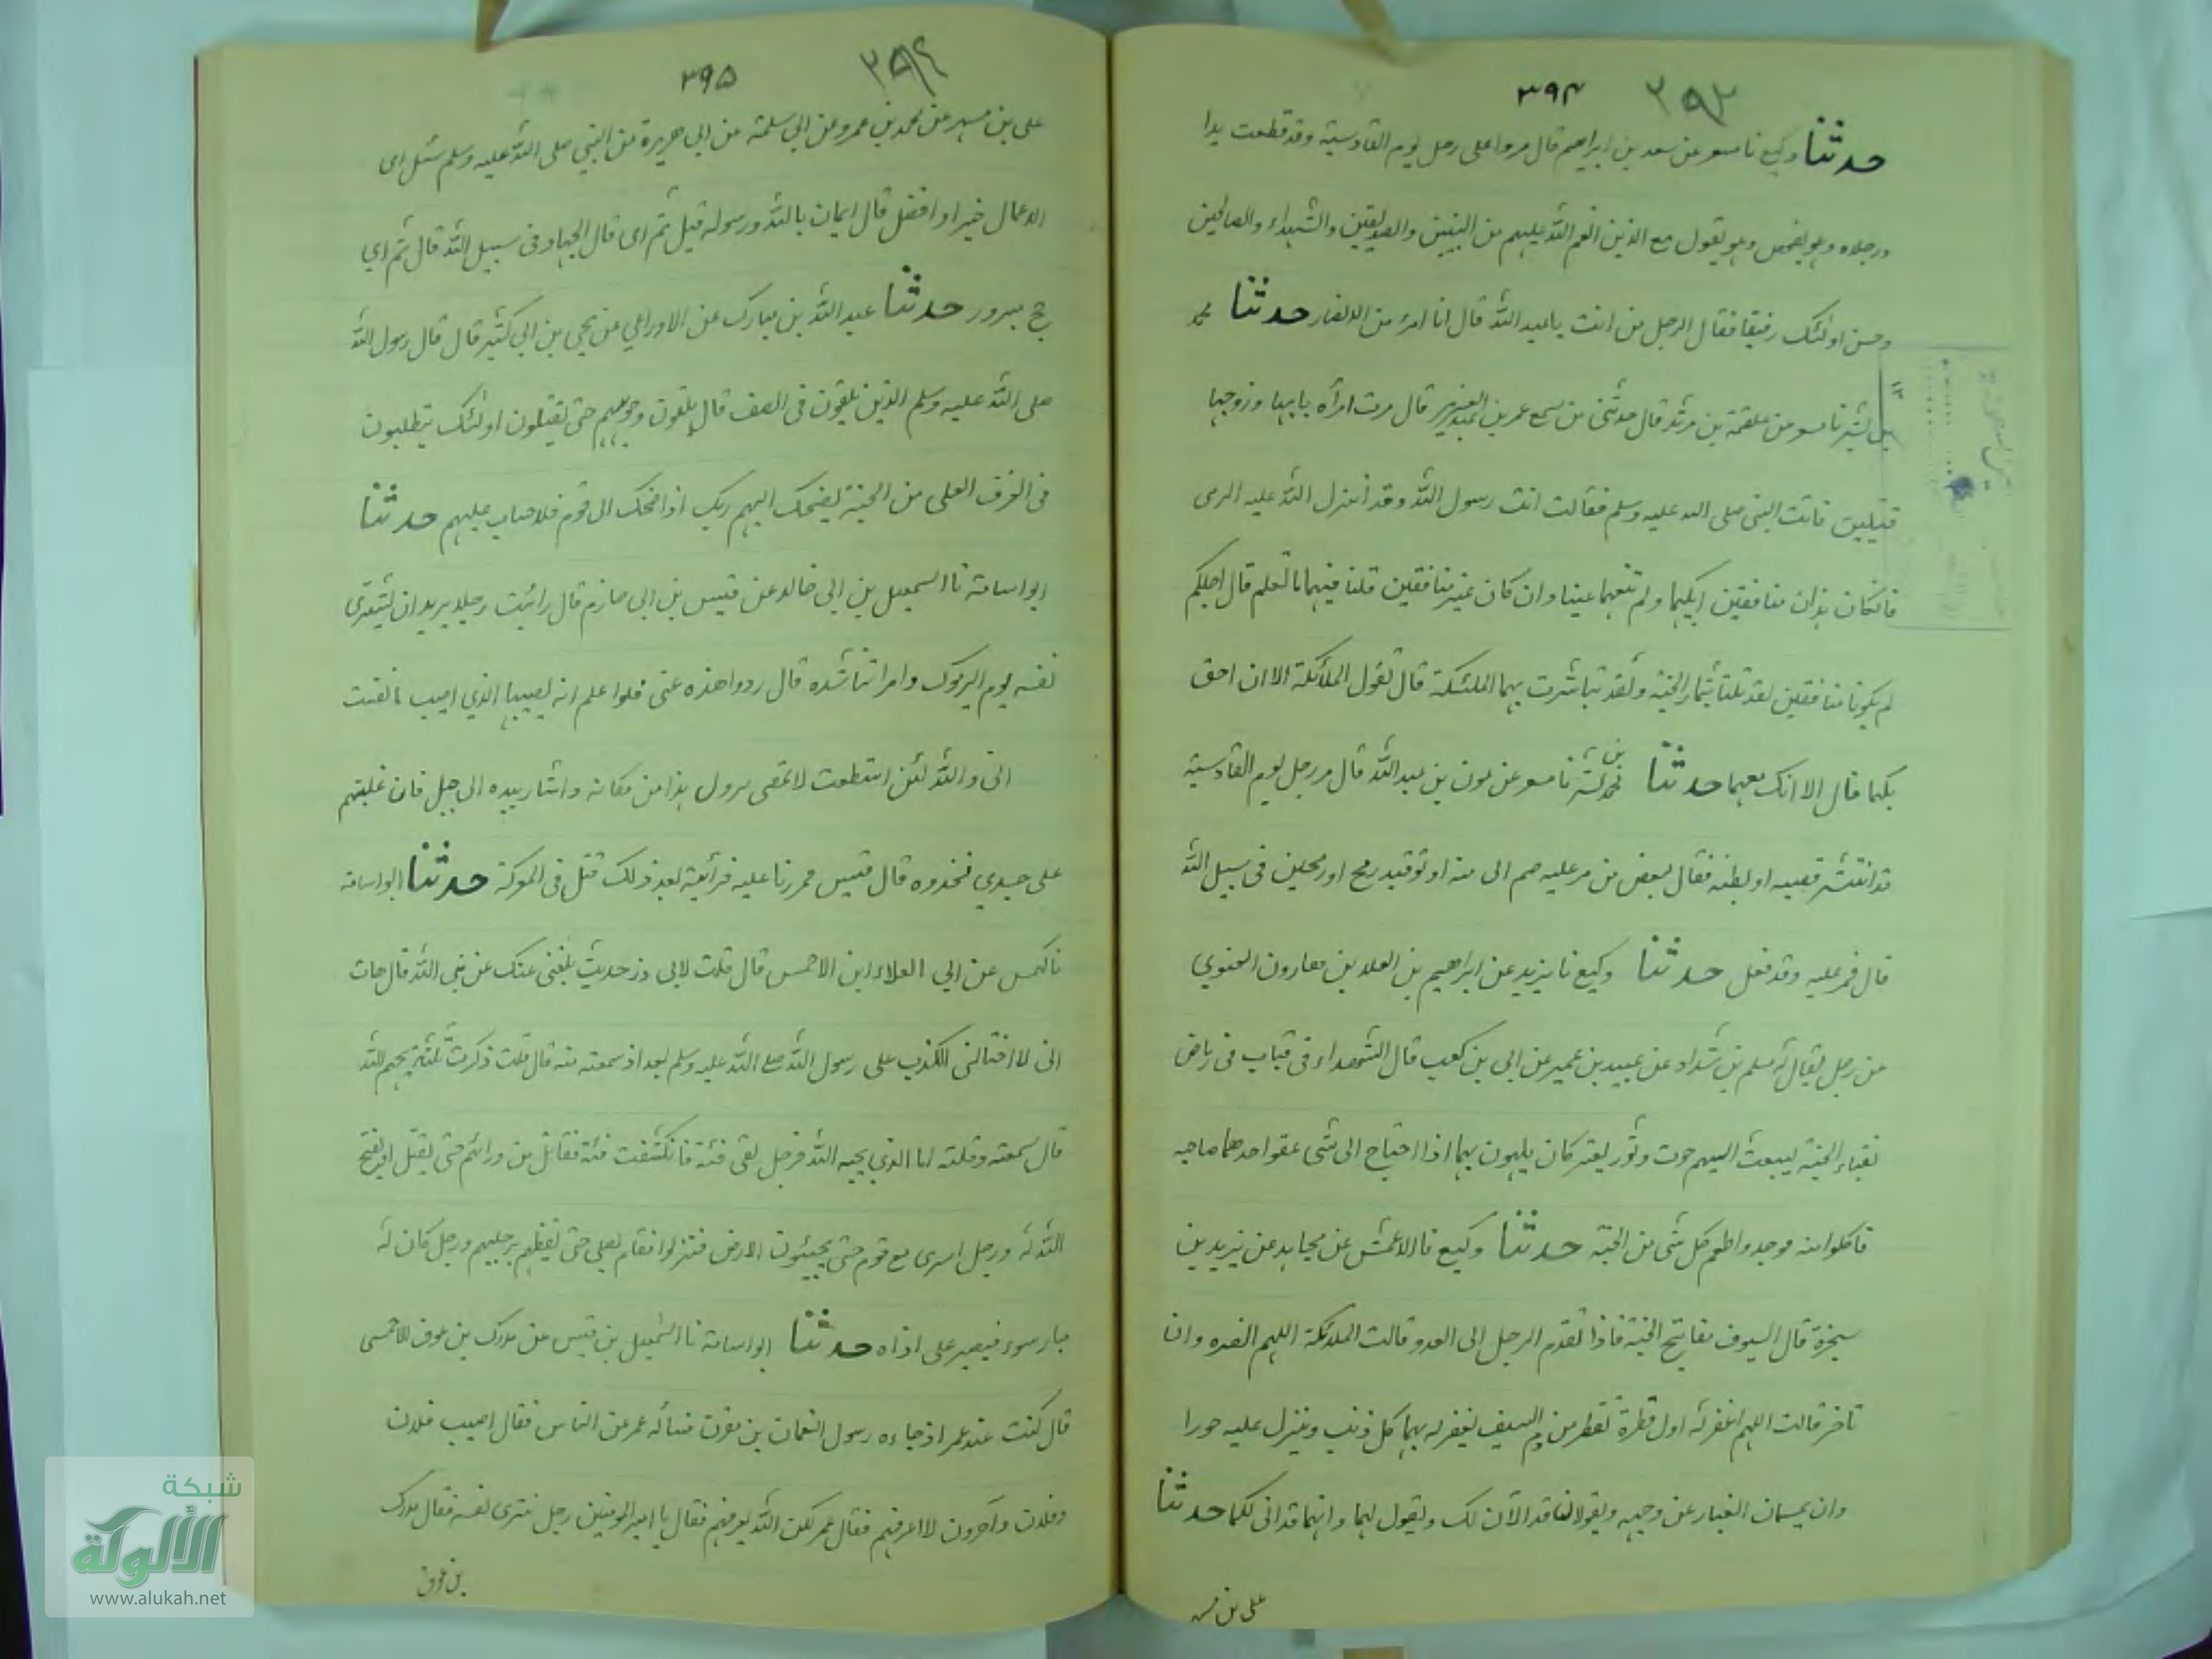 ٣٩٣ ٣٩٤
حدثنا وكيع نا مسعر عن سعد بن ابراهيم قال مروا على رجل يوم القادسية وقد قطعت يدا
ورجلاه وهو يفحص وهو يقول مع الذين انعم الله عليهم من النبيين والصديقين والشهداء والصالحين
وحسن اولئك رفيقا فقال الرجل من انت يا عبد الله قال انا امرء من الانصار حدثنا محمد
بن بشر نا مسعر عن علقمة بن مرثد قال حدثني من سمع عمر بن عبد العزيز قال مرت امرأه بابيها وزوجها
قتيلين فاتت النبي صلى الله عليه وسلم فقالت انت رسول الله وقد أنزل الله عليه الوحي
فان كان هذان منافقين ابكيهما ولم تنعهما عينا وان كان غير منافقين قلنا فيهما ما نعلم قال اجليكم
لم يكونا منافقين لقد تلقتا بثمار الجنة ولقد تباشرت بهما الملئكة قال تقول الملائكة الا ان احق
بكما قال الا انك معهما حدثنا محمد بن بشر نا مسعر عن عون بن عبد الله قال مر رجل يوم القادسية
قد انتشر قصبه او بطنه فقال لبعض من مر عليه ضم الى منه ادنو قيد رمح او رمحين في سبيل الله
قال فمر عليه وقد فعل حدثنا وكيع نا يزيد عن ابراهيم بن العلاء بن هارون الغنوي
عن رجل يقال له مسلم بن شداد عن عبيد بن عمير عن ابي بن كعب قال الشهداء في قباب في رياض
بفناء الجنة يبعث اليهم حوت وثور يعتركان يلهون بهما اذا احتاج الى شئ عقر احدهما صاحبه
فاكلوا منه فوجدوا طعم كل شئ من الجنة حدثنا وكيع نا الاعمش عن مجاهد عن يزيد بن
سخبرة قال السيوف مفاتيح الجنة فاذا تقدم الرجل الى العدو قالت الملائكة اللهم انصره وان
تاخر قالت اللهم اغفر له اول قطرة تقطر من دم السيف يغفر له بها كل ذنب وينزل عليه حورا
وان يمسحان الغبار عن وجهه ويقولان قد الآن لك ويقول لهما وانتما قد انى لكما حدثنا
علي بن مسهر
٣٩٤ ٣٩٥
علي بن مسهر عن محمد بن عمرو عن ابي سلمة عن ابي هريرة عن النبي صلى الله عليه وسلم سئل اى
الاعمال خير او افضل قال ايمان بالله ورسوله قيل ثم اى قال الجهاد في سبيل الله قال ثم اي
حج مبرور حدثنا عبد الله بن مبارك عن الاوزاعي عن يحيى بن ابي كثير قال قال رسول الله
صلى الله عليه وسلم الذين يلقون في الصف قال يلقون وجوههم حتى يقتلون اولئك يتطلبون
في الغرف العلى من الجنة يضحك اليهم ربك اذا ضحك الى قوم فلا حساب عليهم حدثنا
ابو اسامة نا اسمعيل بن ابي خالد عن قيس بن ابي حازم قال رائيت رجلا يريد ان يشترى
نفسه يوم اليرموك وامراتنا شده قال ردوا هذه عني فلوا علم انه يصيبها الذي اصيب ما نفست
انى والله لئن استطعت لاعصى يزول هذا من مكانه واشار بيده الى جبل فان غلبتم
على جسدي فخذوه قال قيس فمررنا عليه فرأيته بعد ذلك قتل في المعركة حدثنا ابو اسامة
نا كهمس عن ابي العلاء ابن الاحمس قال قلت لابي ذر حديث بلغني عنك عن نبي الله قال هات
اني لا اخالني الكذب على رسول الله صلى الله عليه وسلم بعد اذ سمعته منه قال قلت ذكرت ثلثة يحبهم الله
قال سمعته وقلته اما الذي يحبه الله فرجل لقى فئة فانكشفت فئة فقاتل من ورائهم حتى يقتل او يفتح
الله له ورجل اسرى مع قوم حتى يحبون الارض فنزلوا فقام يصلي حتى ايقظهم برحيلهم ورجل كان له
جار سوء فيصبر على اذاه حدثنا ابو اسامة نا اسمعيل بن قيس عن مدرك بن عوف الاحمسي
قال كنت عند عمر اذ جاءه رسول النعمان بن مقرن فسأله عمر عن الناس فقال اصيب فلان
وفلان وآخرون لا اعرفهم فقال عمر لكن الله يعرفهم فقال يا امير المؤمنين رجل شرى نفسه فقال مدرك
بن عوف
شبكة
الألوكة
www.alukah.net